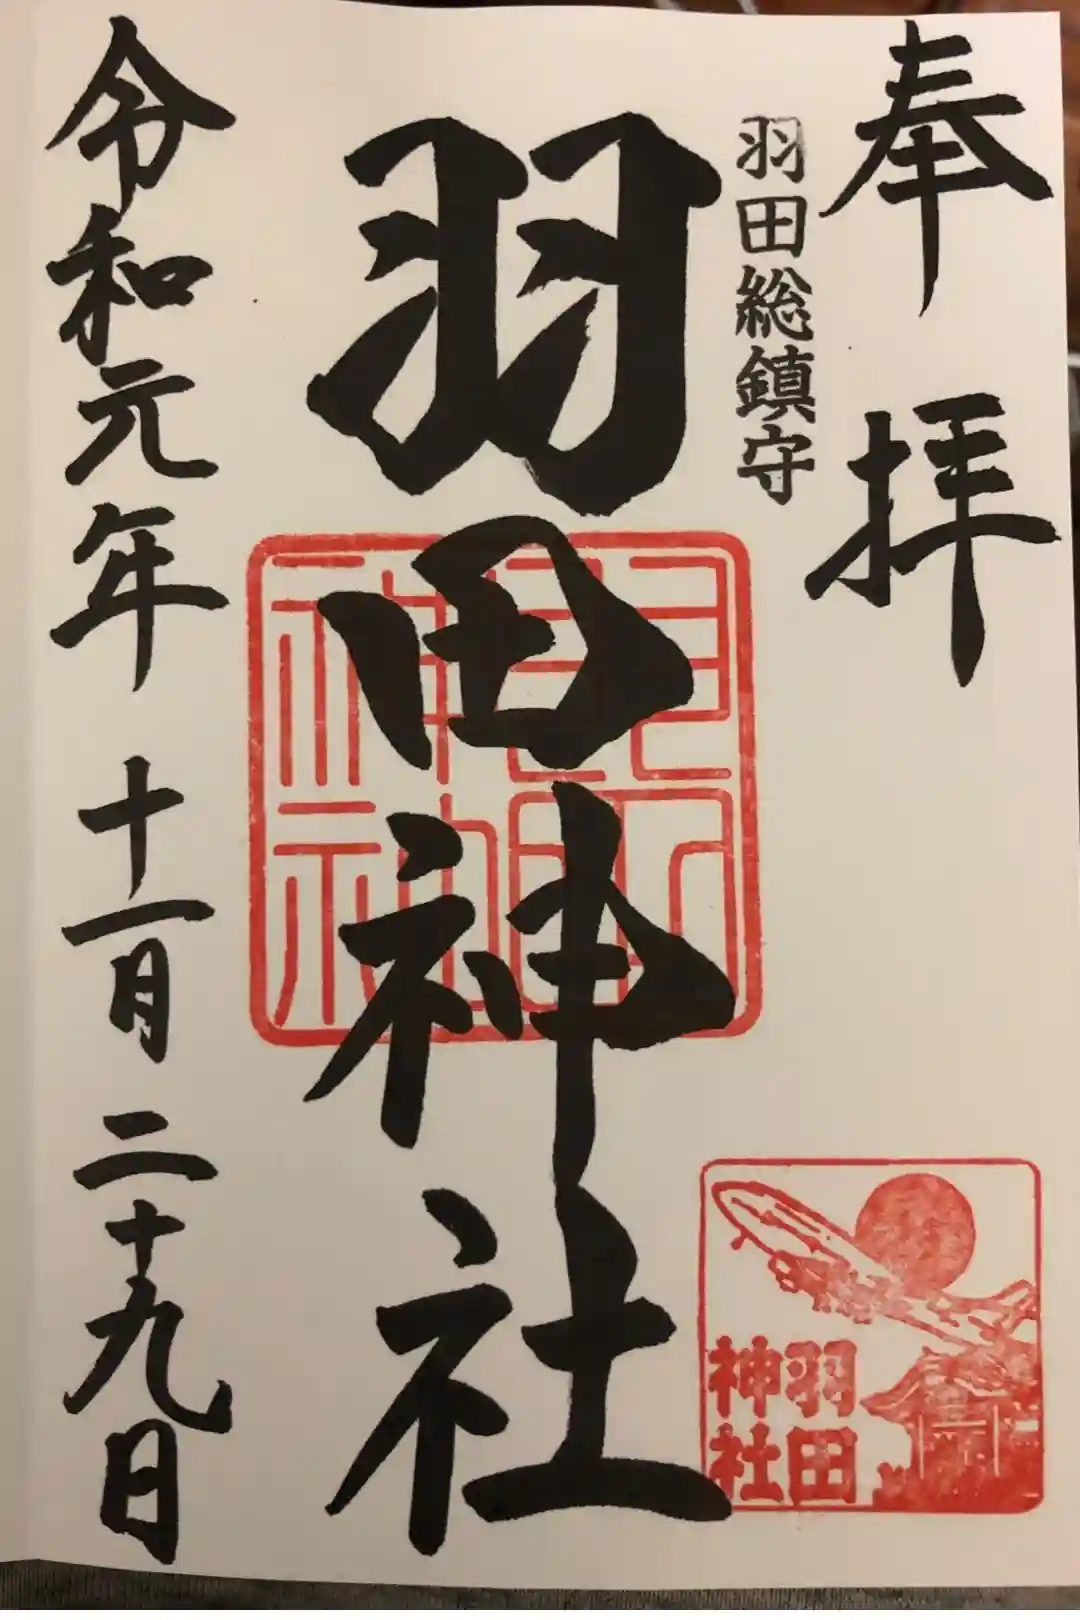 奉拝
羽田総鎮守
羽田神社
令和元年 十一月 二十九日
羽田
神社